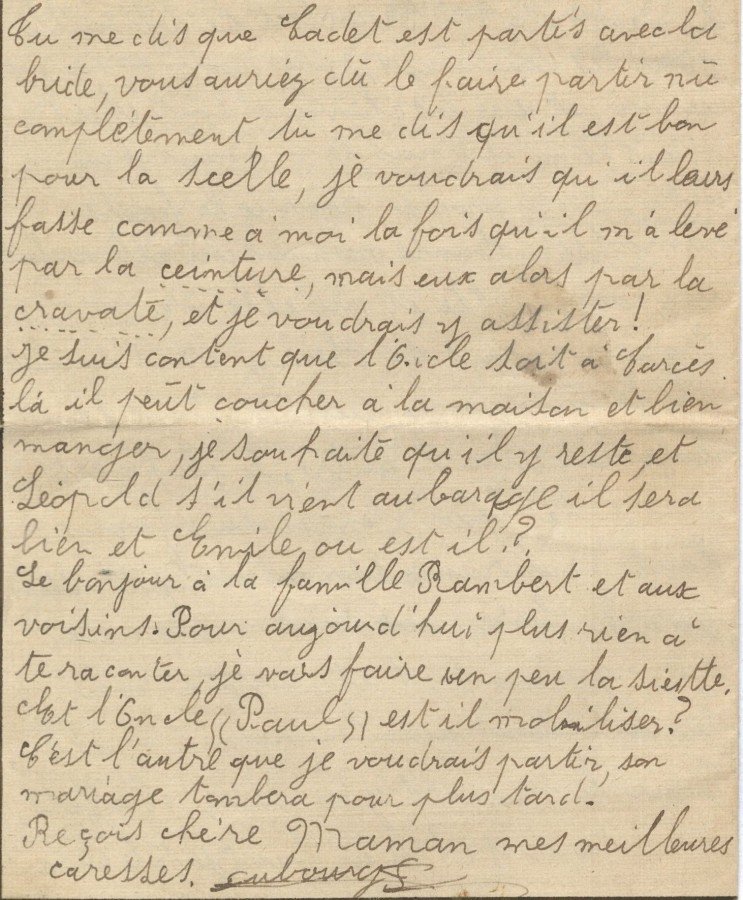 Tu me dis que Cadet est partis avec la
bride, vous auriéz dû le faire partir nū
complétement tu me dis qu'il est bon
pour la scelle, jè voudrais qu'il leurs
fasse comme à moi la fois qu'il m'à levé
par la ceinture, mais eux alors par la
cravate, et jè voudrais y assister!
je suis content que l'Oncle soit à Carcès.
là il peūt coucher à la maison et bien
manger, jè souhaite qu'il y reste, et
Léopold s'il vient au barage il sera
bien et Emile, ou est il.?
Le bonjour à la famille Rambert et aux
voisins. Pour aujourd'hui plus rien à
te raconter, jè vais faire un peu la siestte.
Et l'Oncle ((Paul)) est il mobiliser?
C'est l'autre que je voudrais partir, son
mariage tombera pour plus tard.
Reçois chère Maman mes meilleures
caresses. Aubourg